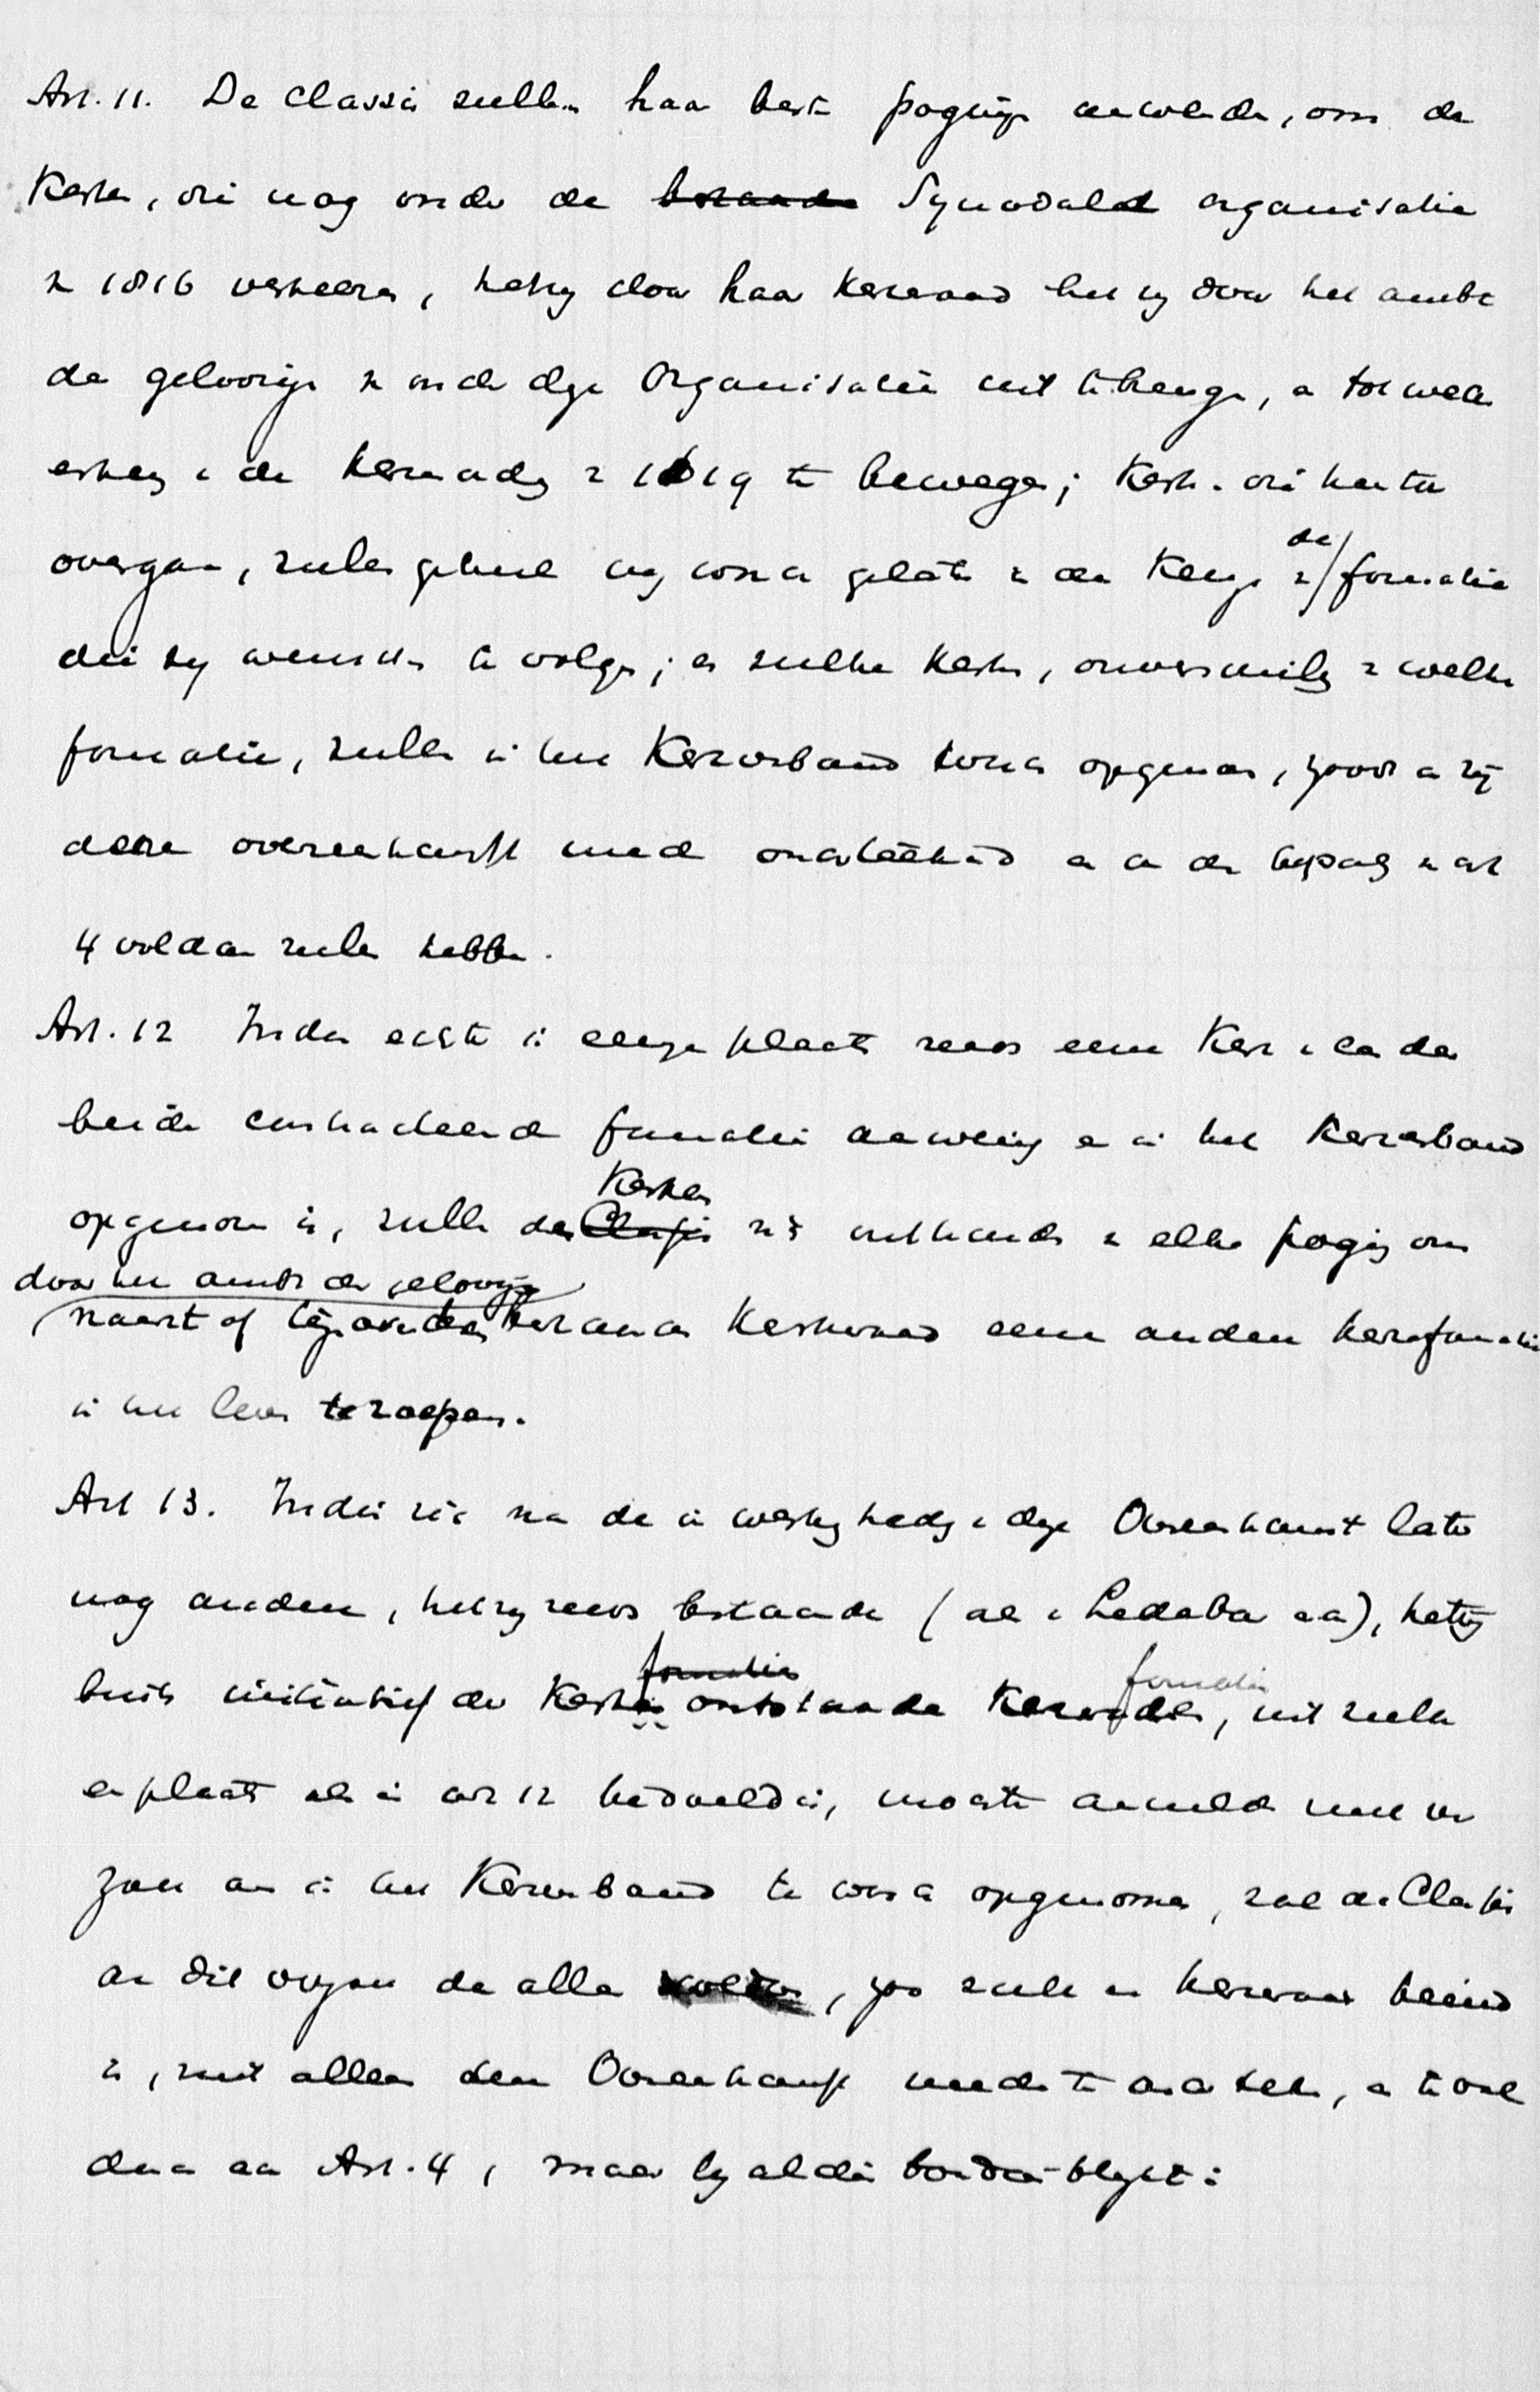 Art. 11. De Classis zullen haar beste poging aanwenden, om de
Kerken, die nog onder de bestaande Synodale organisatie
v 1816 verkeeren, hetzij door haar Kerkeraad hetzij door het ambt
der geloovigen v onder deze Organisatie uit te brengen, en tot weder
in de 1619 te bewegen; Kerken die hiertoe
overgaan, zullen geheel vrij worden gelaten in de Keuze v/de formatie
die zij wenschen te volgen; en zulke Kerken, onverschillig v welke
formatie, zullen in het Kerkverband worden opgenomen, zoodra zij
deze overeenkomst mede onderteekend en aan de bepaling v art
4 voldaan zullen hebben.
Art. 12 Indien echter in eenige plaats reeds eene Kerk v een der
beide contracteerende formatie aanwezig en in het Kerkverband
opgenomen is, zullen de Classis Kerken zich onthouden v elke poging om
door het ambt der geloovigen
naast of tegenover dezen Kerkeraad eene andere kerkformatie
in het leven te roepen.
Art 13. Indien zich na de in werking v deze Overeenkomst later
nog andere, hetzij reeds bestaande (als v Ledeboer ea), hetzij
formatie formatie
buiten initiatief der Kerken ontstaande Kerken, uit zulk
een plaats als in art 12 bedoeld is, mochten aanmelden met ver
zoek om in het Kerkverband te worden opgenomen, zal de Classis
aan dit verzoek dan alleen voldoen, zoo zulk een kerkeraad bereid
is, niet alleen deze Overeenkomst mede te onderteekenen, en te vol
doen aan Art. 4, maar bij aldien bovendien blijkt: